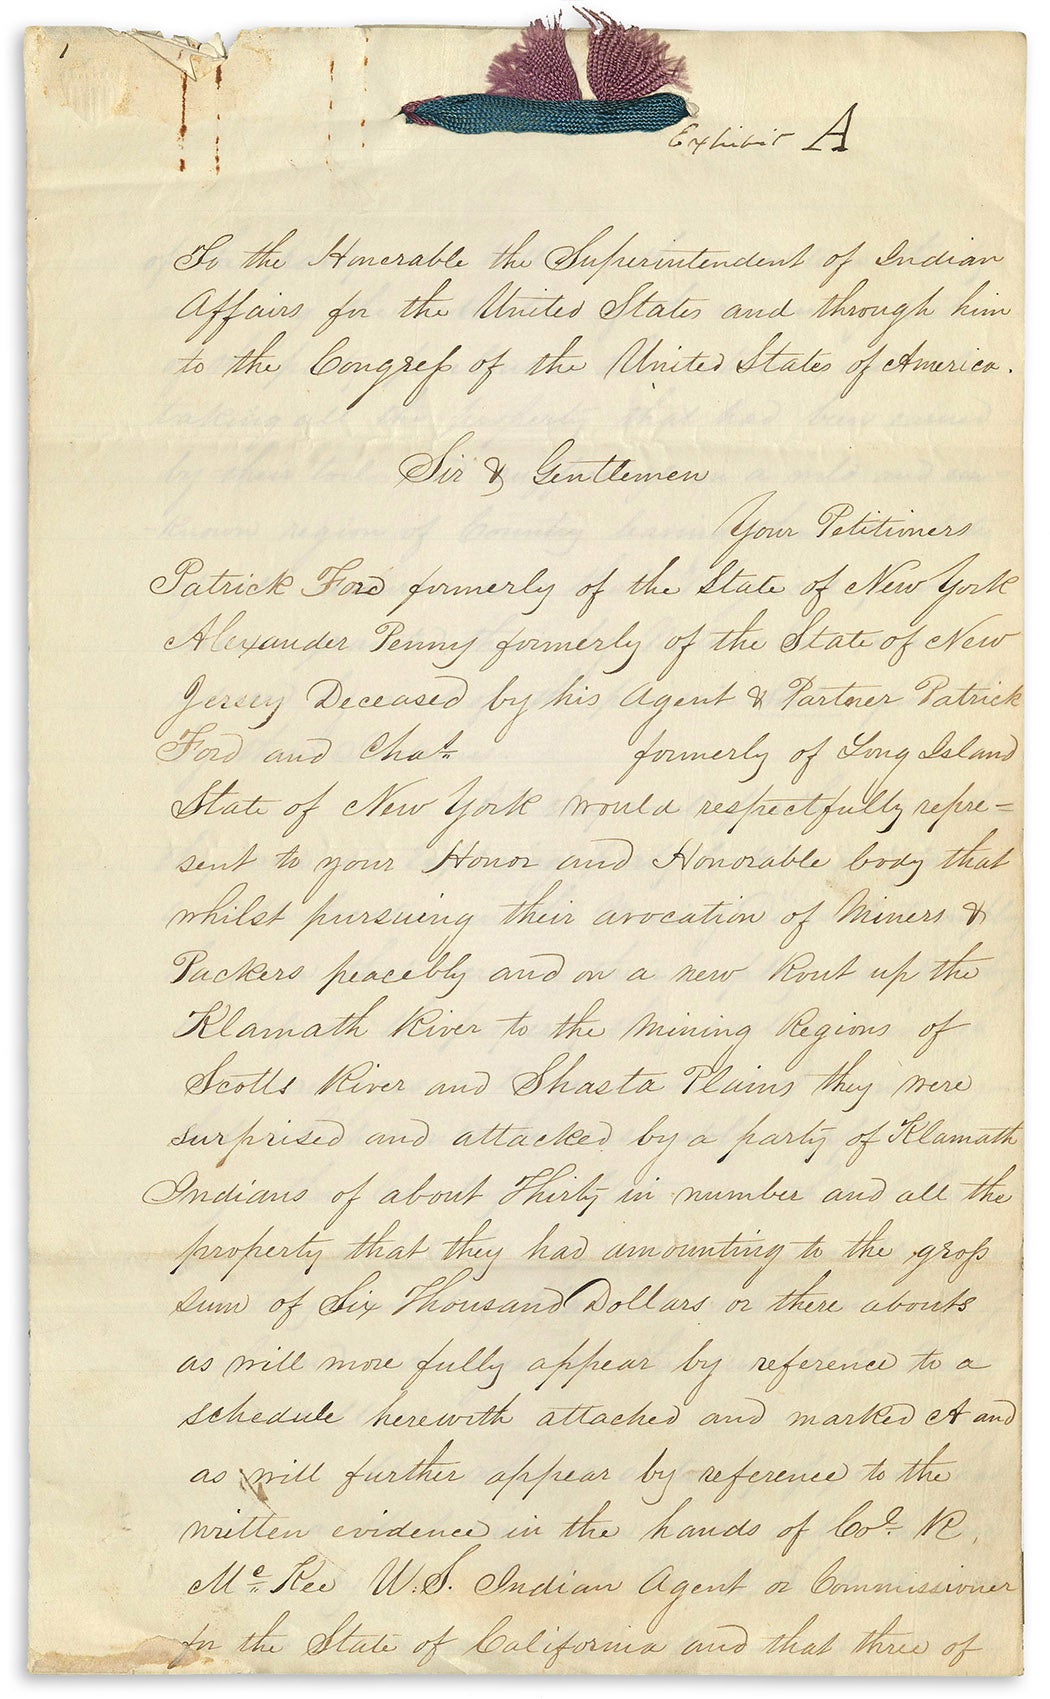 1
Exhibit A
To the Honerable the Superintendent of Indian
Affairs for the United States and through him
to the Congress of the United States of America.
Sir & Gentlemen
Your Petitioners
Patrick Ford formerly of the State of New York
Alexander Penny formerly of the State of New
Jersey Deceased by his Agent & Partner Patrick
Ford and Chas. formerly of Long Island
State of New York would respectfully repre=
sent to your Honor and Honorable body that
whilst pursuing their avocation of Miners &
Packers peacebly and on a new Rout up the
Klamath River to the Mining Regions of
Scotts River and Shasta Plains they were
surprised and attacked by a party of Klamath
Indians of about Thirty in number and all the
property that they had amounting to the gross
sum of Six Thousand Dollars or there abouts
as will more fully appear by reference to a
schedule herewith attached and marked A and
as will further appear by reference to the
written evidence in the hands of Col. R.
Mc. Kee U.S. Indian Agent or Commissioner
for the State of California and that three of